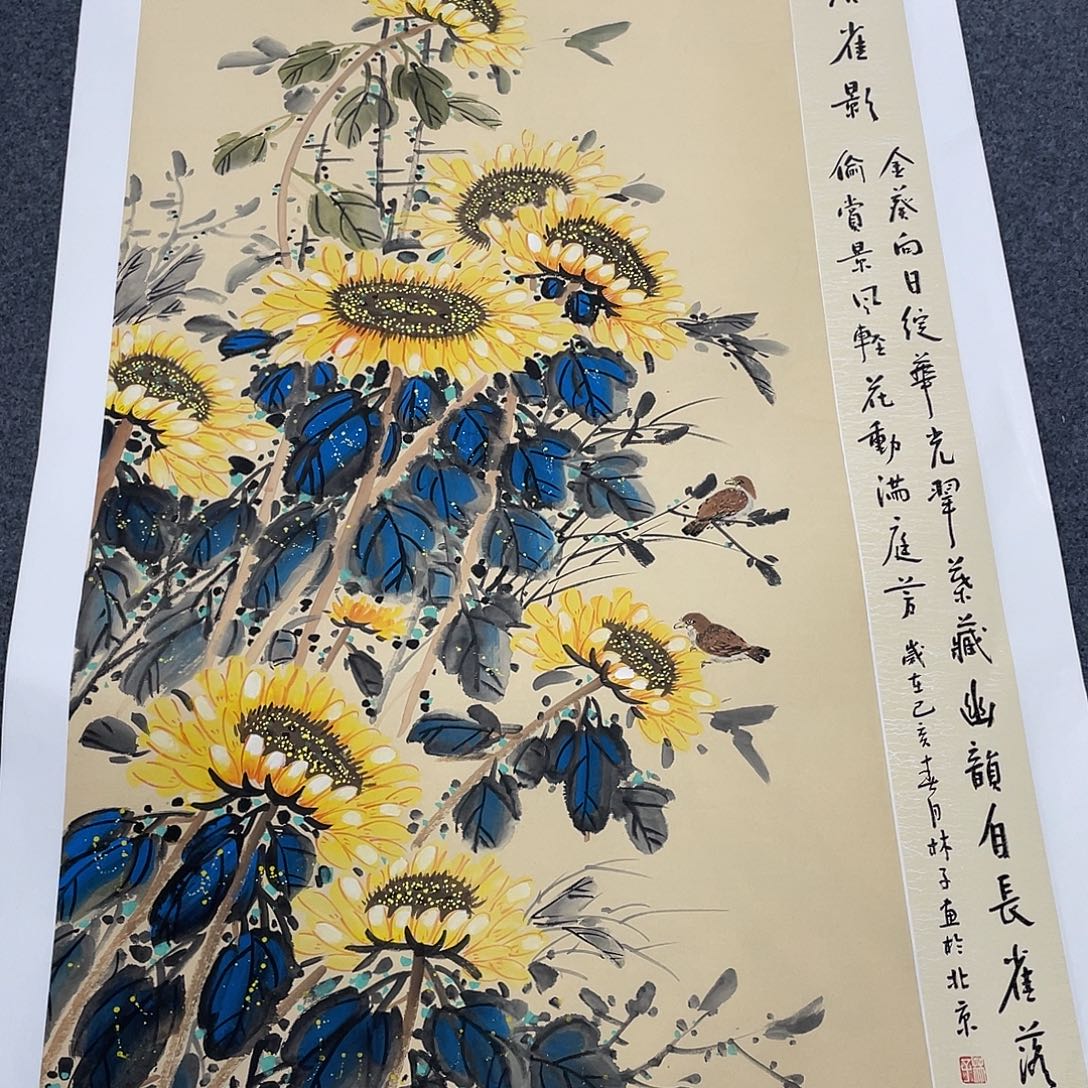 雀影
金葵向日绽華光翠葉藏幽韻自長雀落
偷賞景风輕花動满庭芳
歲在己亥春月林子画於北京